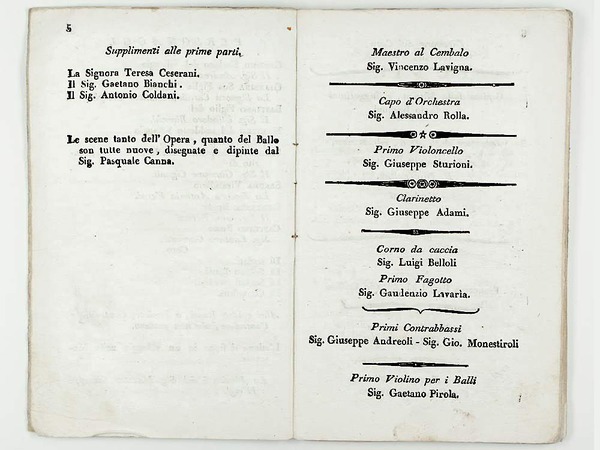 Supplimenti alle prime parti.
La Signora Teresa Ceserani.
Il Sig. Gaetano Bianchi.
Il Sig. Antonio Coldani.
Le scene tanto dell' Opera, quanto del Ballo
son tutte nuove, disegnate e dipinte dal
Sig. Pasquale Canna.
Maestro al Cembalo
Sig. Vincenzo Lavigna.
Capo d'Orchestra
Sig. Alessandro Rolla.
Primo Violoncello
Sig. Giuseppe Sturioni.
Clarinetto
Sig. Giuseppe Adami.
Corno da caccia
Sig. Luigi Belloli
Primo Fagotto
Sig. Gaudenzio Lavaria.
Primi Contrabbassi
Sig. Giuseppe Andreoli - Sig. Gio. Monestiroli
Primo Violino per i Balli
Sig. Gaetano Pirola.